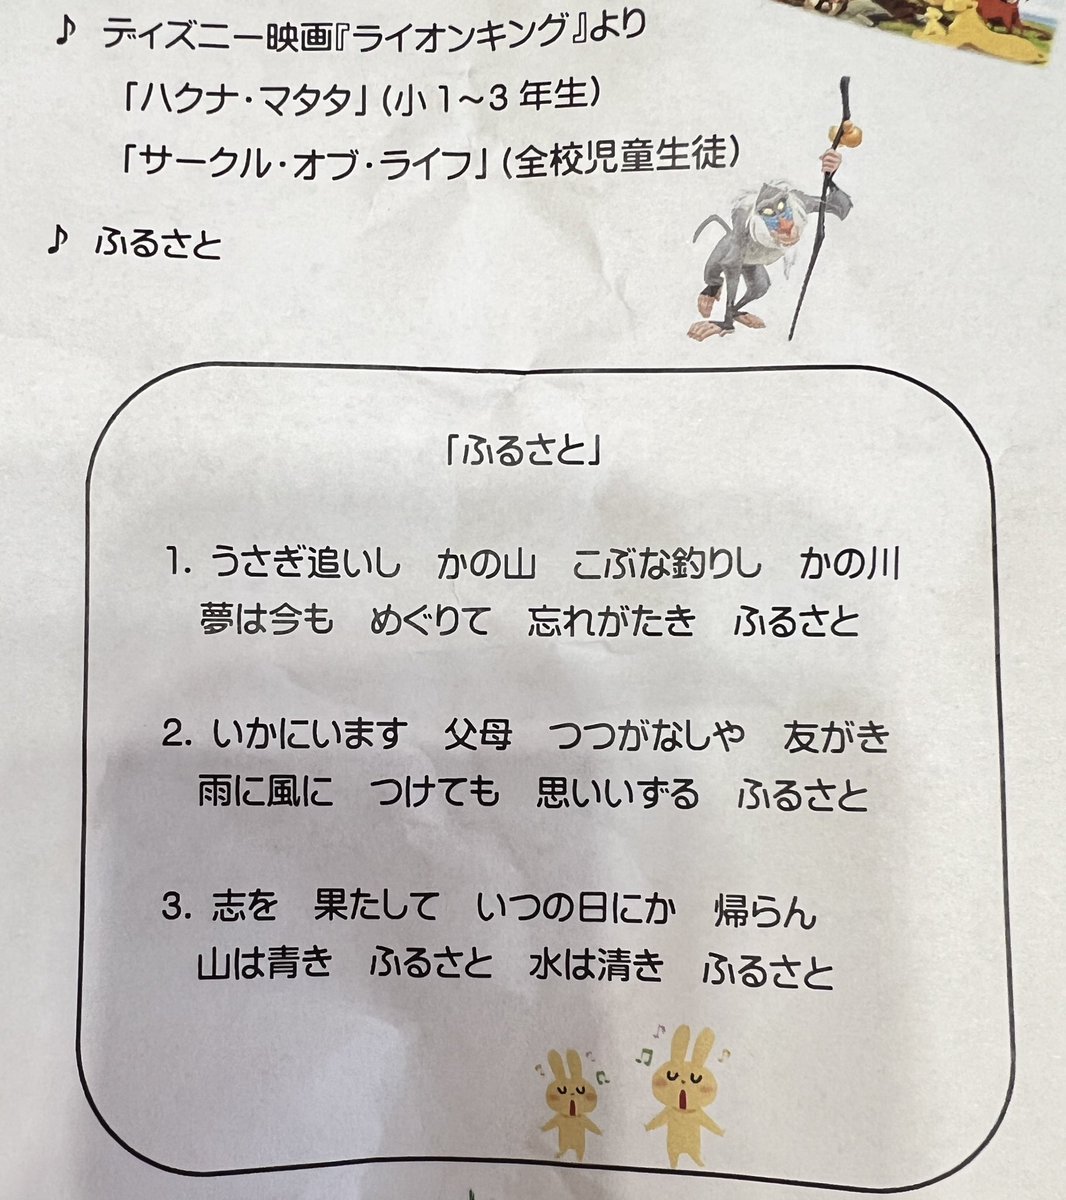 ♪ ディズニー映画『ライオンキング』より
「ハクナ・マタタ」(小1~3年生)
「サークル・オブ・ライフ」(全校児童生徒)
♪ ふるさと
「ふるさと」
1. うさぎ追いし　かの山　こぶな釣りし　かの川
夢は今も　めぐりて　忘れがたき　ふるさと
2. いかにいます　父母　つつがなしや　友がき
雨に風に　つけても　思いいずる　ふるさと
3. 志を　果たして　いつの日にか　帰らん
山は青き　ふるさと　水は清き　ふるさと